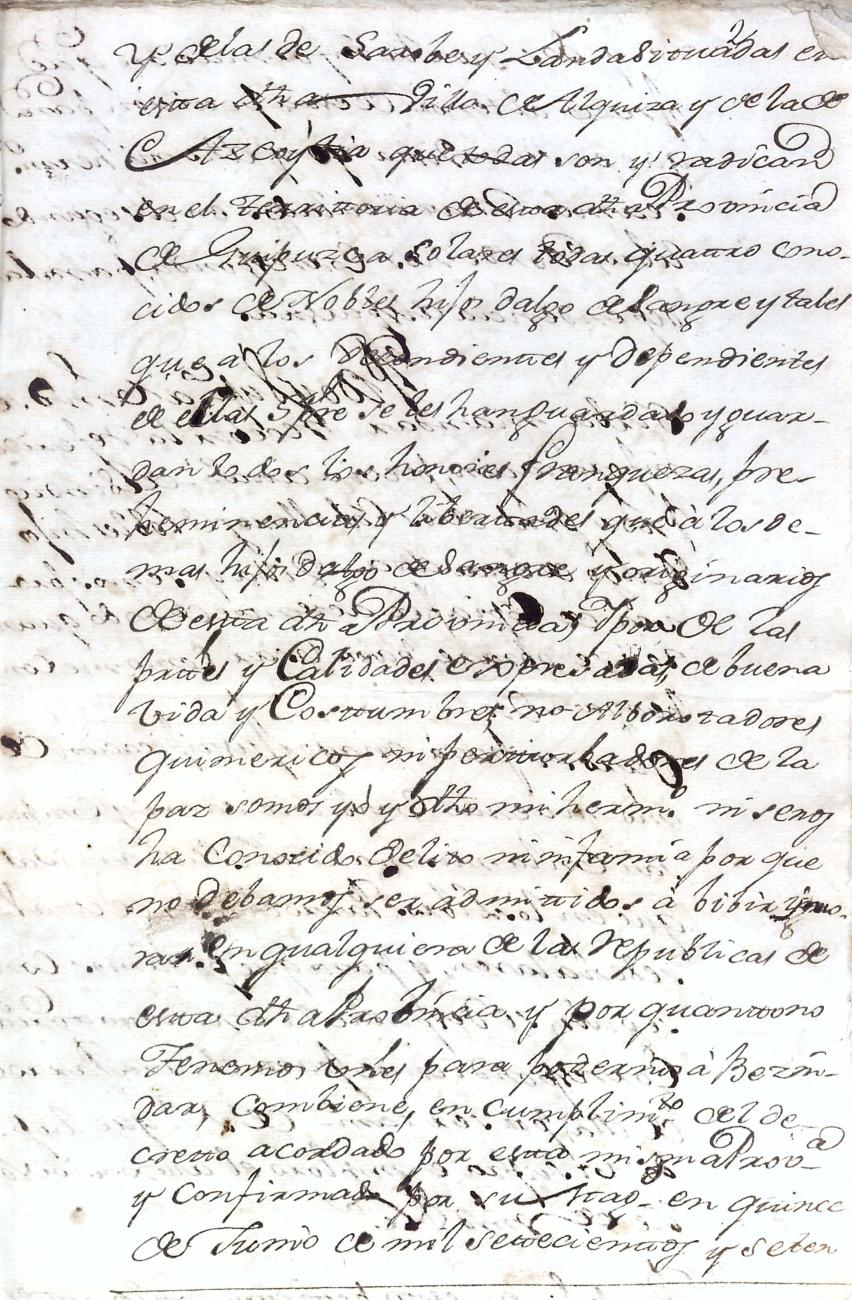 y de las de Sasobe y Landa Situadas en
esta dha Villa de Alquiza y de la de
Azcoytia que todas son y radican
en el territorio de esta dha Provincia
de Guipuzcoa Solares todas quattro cono-
cidos de Nobles hijos dalgo de Sangre y tales
que a los Decendientes y Dependientes
de ellas Spre se les han guardado y guar-
dan todos los honores franquezas, pre-
heminencias y libertades que à los de-
mas hijos dalgo de Sangre y originarios
de esta dha Provincia, Y por de las
prttes y Calidades expresadas, de buena
vida y Costtumbres no Alborotadores
quimericos ni perttorbadores de la
paz somos yo y dho mi hermº. ni se nos
ha Conocido delito ni infamia por que
no Debamos ser admittidos à bibir y mo-
rar. En qualquiera de las republicas de
esta dha Probincia y por quantto no
Tenemos para podernos à Bezin-
dar, Combiene, en cumplimtº del de-
cretto acordado por esta misma Provª
y Confirmado por su Mag. en quince
de Junio de mil settecienttos y seten